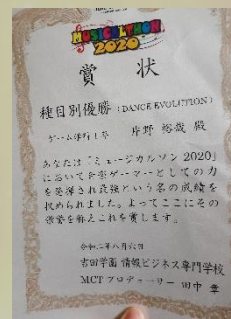 MUSICULTHON
2020
賞状
種目別優勝（DANCE EVOLUTION）
片野 裕哉 殿
あなたは“ミュージカルソン 2020”
において音楽ゲーマーとしての力
を発揮され最強という名の成績を
収められました。よってここにその
栄誉を称えこれを賞します。
令和二年八月六日
吉田学園 情報ビジネス専門学校
MCT プロデューサー 田中 幸